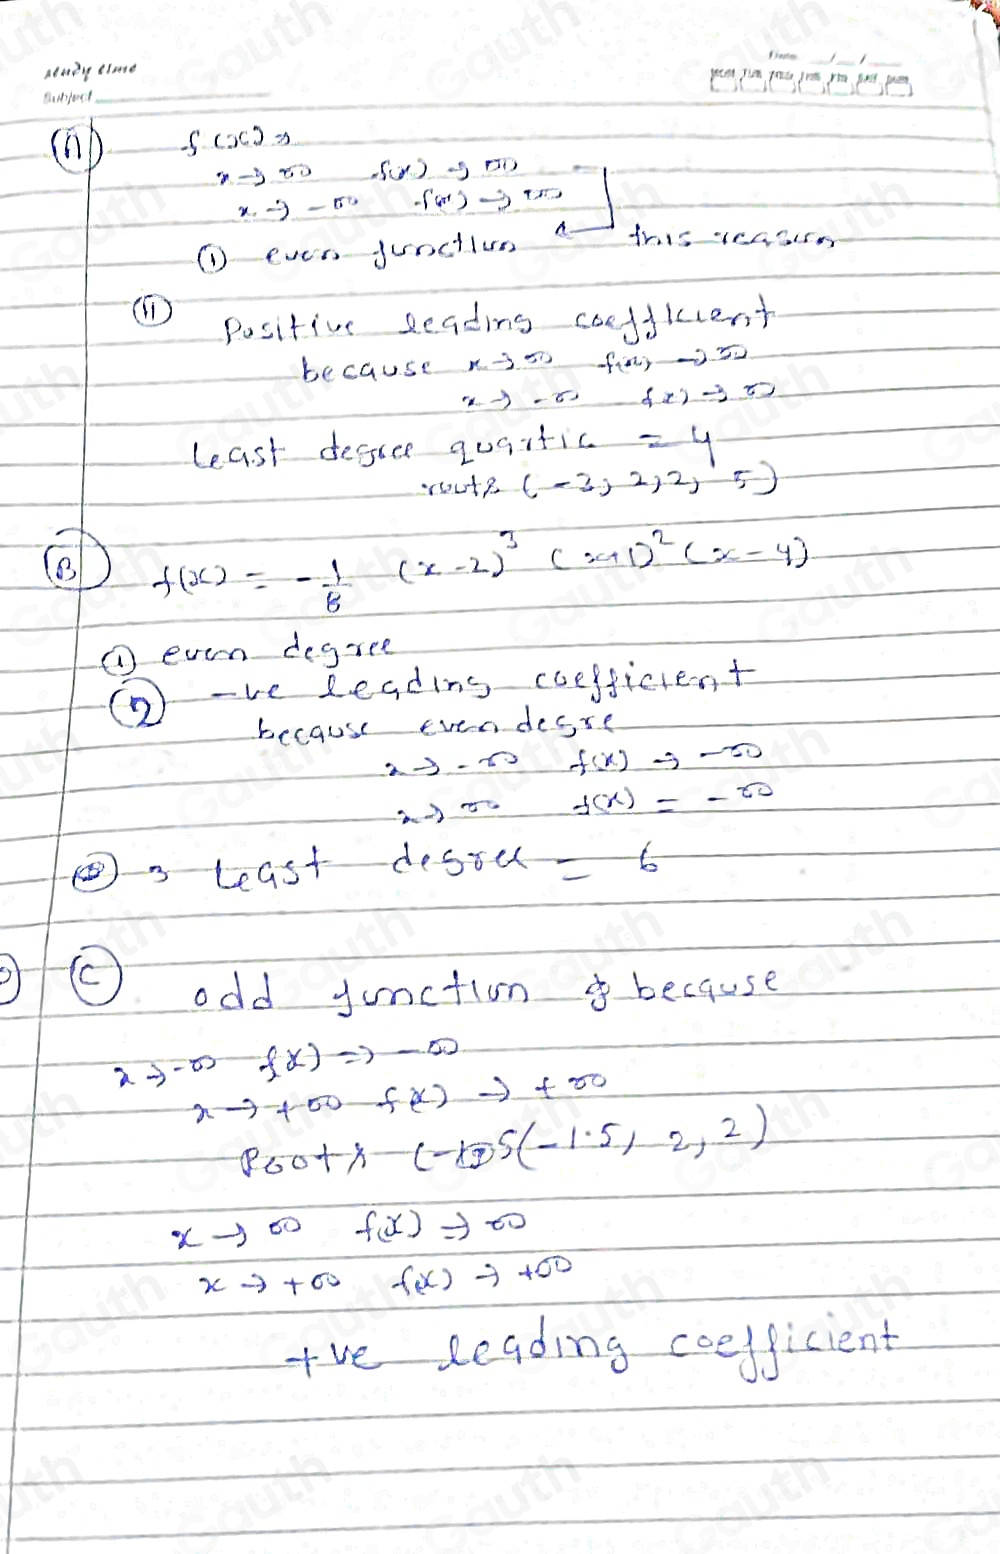 study time
Subject
(A) f(x) ⇒
x → ∞ f(x) → ∞
x → -∞ f(x) → ∞
(1) even function this reason
(11) Positive leading coefficient
because x → ∞ f(x) → ∞
x → -∞ f(x) → ∞
least degree quartic = 4
roots (-3, 2, 2, 5)
(B) f(x) = -1/8 (x-2)^3 (x+1)^2 (x-4)
(1) even degree
(2) -ve leading coefficient
because even degre
x → -∞ f(x) → -∞
x → ∞ f(x) = -∞
3 least degree = 6
(C) odd function because
x → -∞ f(x) → -∞
x → +∞ f(x) → +∞
Roots (-1.5, 2, 2)
x → ∞ f(x) → ∞
x → +∞ f(x) → +∞
+ve leading coefficient